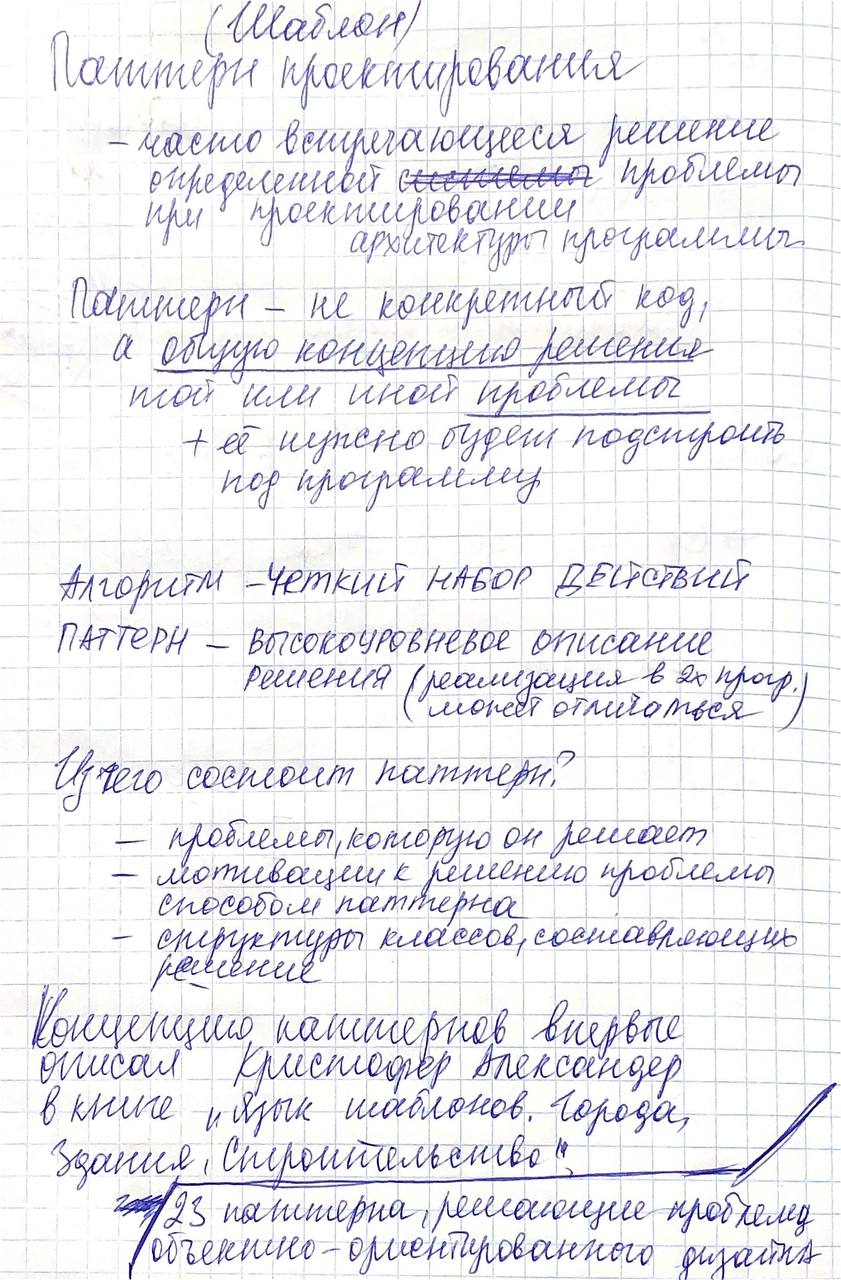 (Шаблон)
Паттерн проектирования
- часто встречающееся решение
определенной системы проблемы
при проектировании
архитектуры программы
Паттерн – не конкретный код,
а общую концепцию решения
той или иной проблемы
+ её нужно будет подстроить
под программу
Алгоритм – Четкий набор действий
Паттерн – высокоуровневое описание
решения (реализация в 2х прогр.
может отличаться)
Из чего состоит паттерн?
– проблемы, которую он решает
– мотивации к решению проблемы
способом паттерна
– структуры классов, составляющих
решение
Концепцию паттернов впервые
описал Кристофер Александер
в книге „Язык шаблонов. Города,
Здания, Строительство",
23 паттерна, решающие проблемы
объектно-ориентированного дизайна